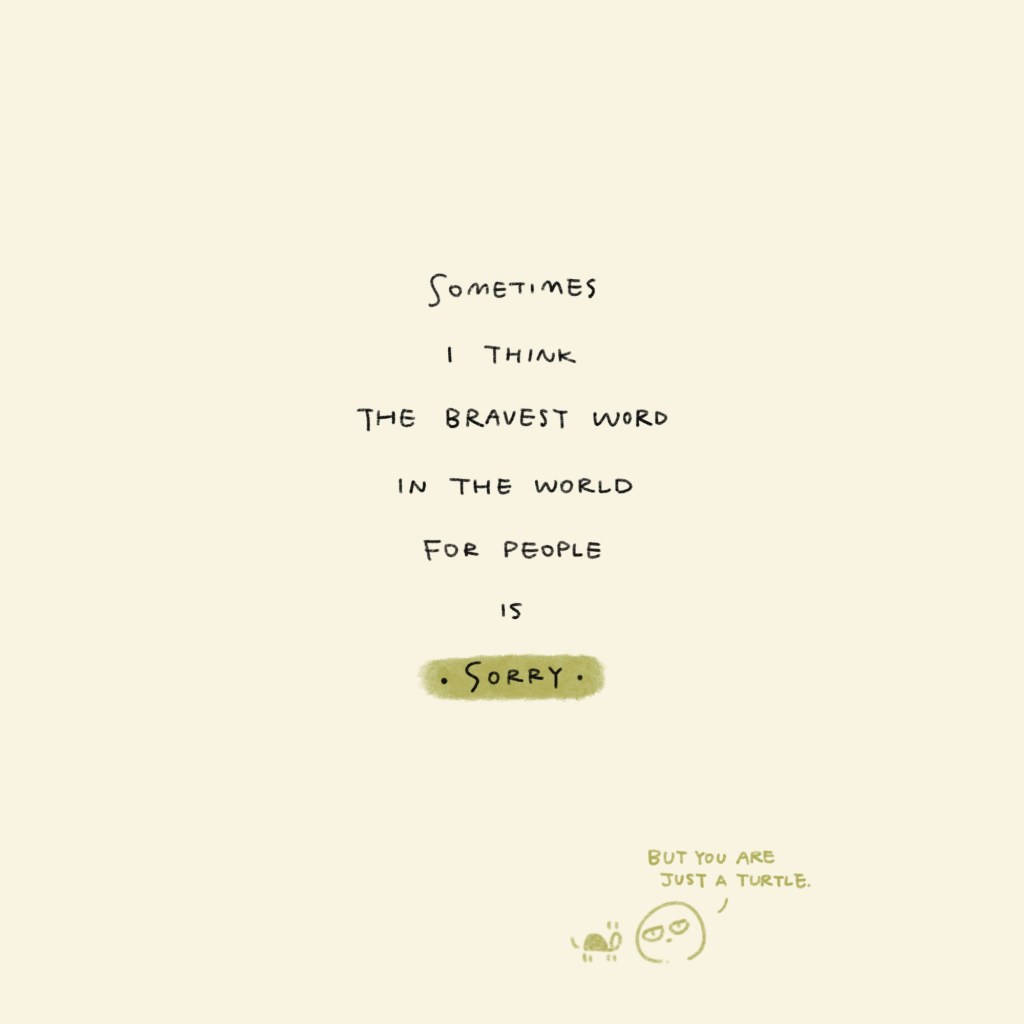 SOMETIMES
I THINK
THE BRAVEST WORD
IN THE WORLD
FOR PEOPLE
IS
• SORRY •
BUT YOU ARE
JUST A TURTLE.